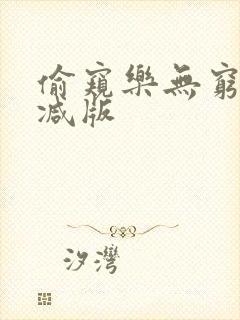 偷窺樂無窮
减版
汐灣